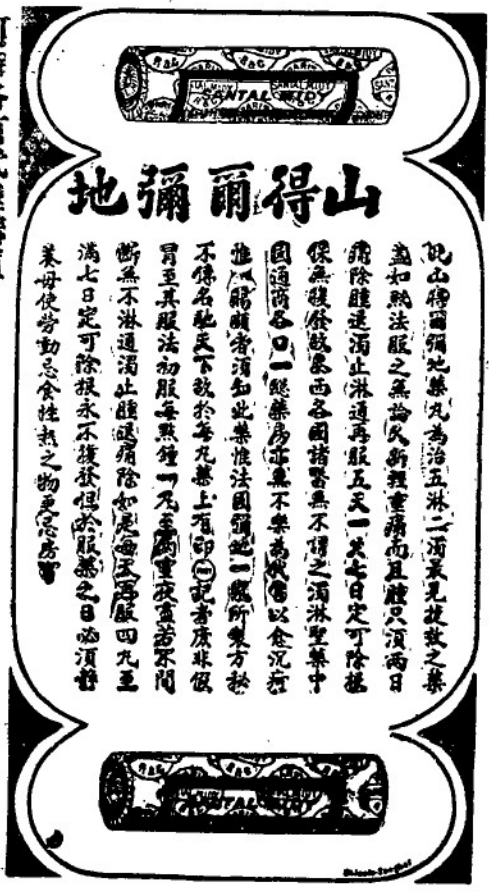 山得爾彌地
此山得爾彌地藥丸為治五淋二濁最見捷效之藥
蓋如照法服之無論久新輕重痛而且腫只須兩日
痛除腫退濁止淋通再服五天一共七日定可除根
保無復發故泰西各國諸醫無不謂之濁淋聖藥中
國通商各口一總藥房亦無不樂為代售以食沉疴
惟賜顧者須知此藥惟法國彌地一所製方秘
不傳名馳天下故於每丸藥上有印記者庶非假
冒至其服法初服每點鐘一丸至兩重夜寐若不間
斷無不淋通濁止腫退痛除如是每天再服四丸至
滿七日定可除根永不復發但於服藥之日必須靜
養毋使勞動忌食性熱之物更忌房
SANTAL MIDY